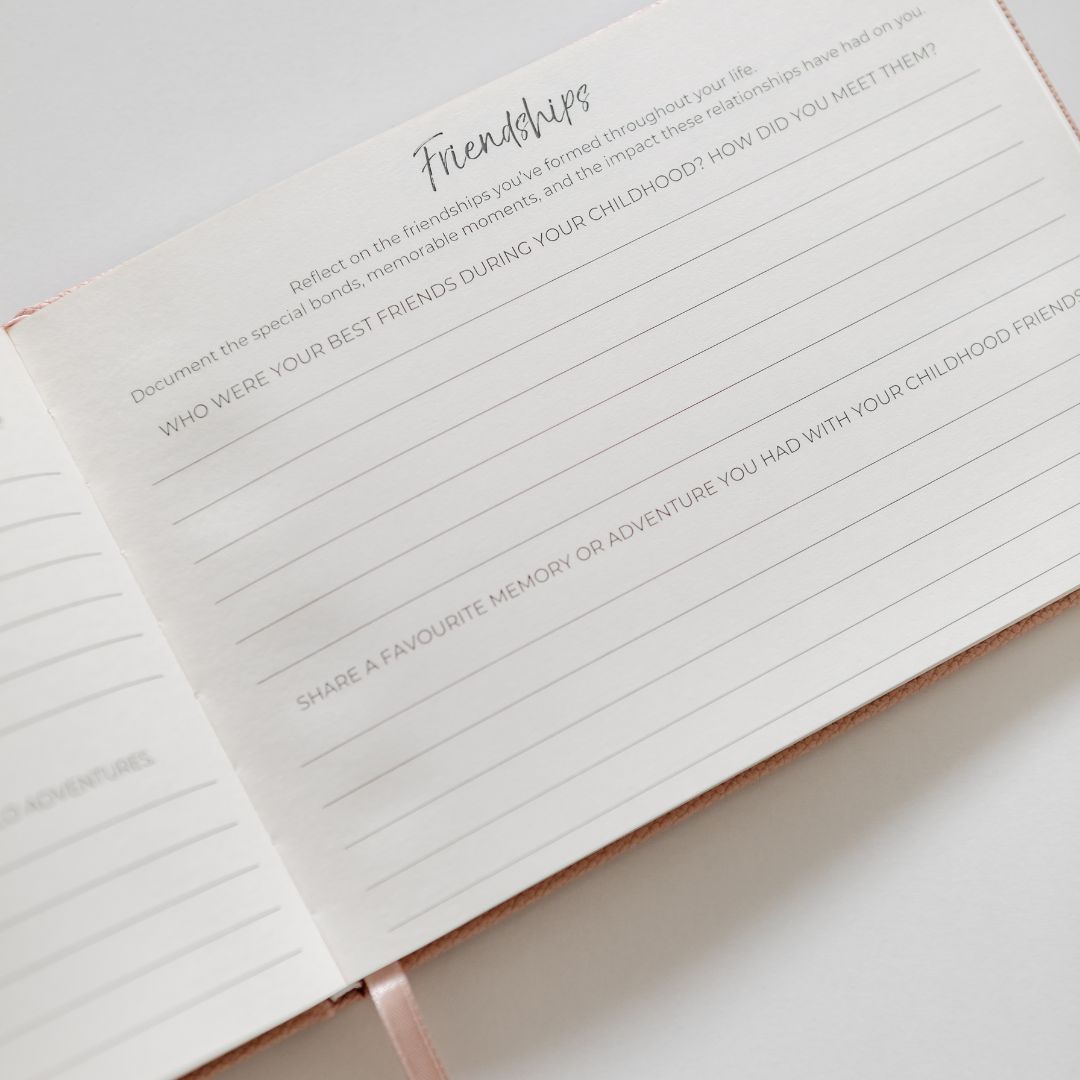 ADVENTURES.
Friendships
Reflect on the friendships you've formed throughout your life.
Document the special bonds, memorable moments, and the impact these relationships have had on you.
WHO WERE YOUR BEST FRIENDS DURING YOUR CHILDHOOD? HOW DID YOU MEET THEM?
SHARE A FAVOURITE MEMORY OR ADVENTURE YOU HAD WITH YOUR CHILDHOOD FRIENDS